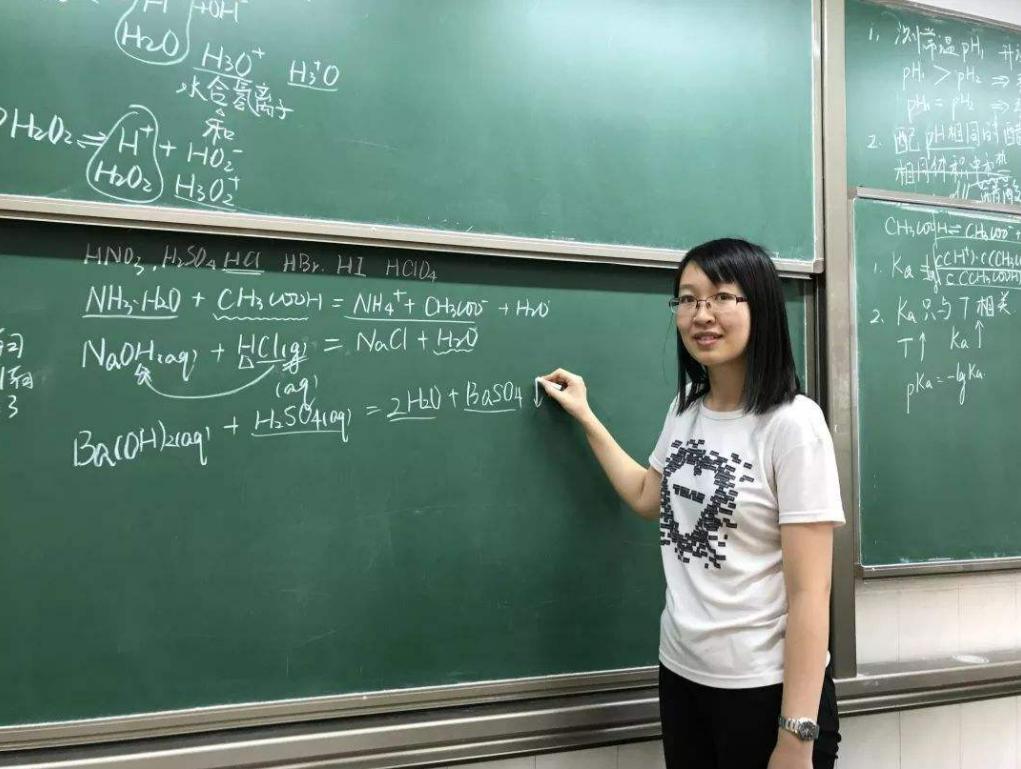 H +OH⁻
H2O
H3O⁺ H3⁺O
水合氢离子
和
H2O2 ⇌ H⁺ + HO2⁻
H2O2 H3O2⁺
HNO3, H2SO4 HCl HBr. HI HClO4
NH3·H2O + CH3COOH = NH4⁺ + CH3COO⁻ + H2O
NaOH(aq) + HCl(g) = NaCl + H2O
(aq)
Ba(OH)2(aq) + H2SO4(aq) = 2H2O + BaSO4 ↓
3
1. 测常温pH,
pH1 > pH2 ⇒
pH1 = pH2 ⇒
2. 配pH相同的醋
相同体积
CH3COOH ⇌ CH3COO⁻ +
1. Ka = c(H⁺)·c(CH3COO
c(CH3COOH)
2. Ka 只与T相关
T↑ Ka↑
pKa = -lg Ka